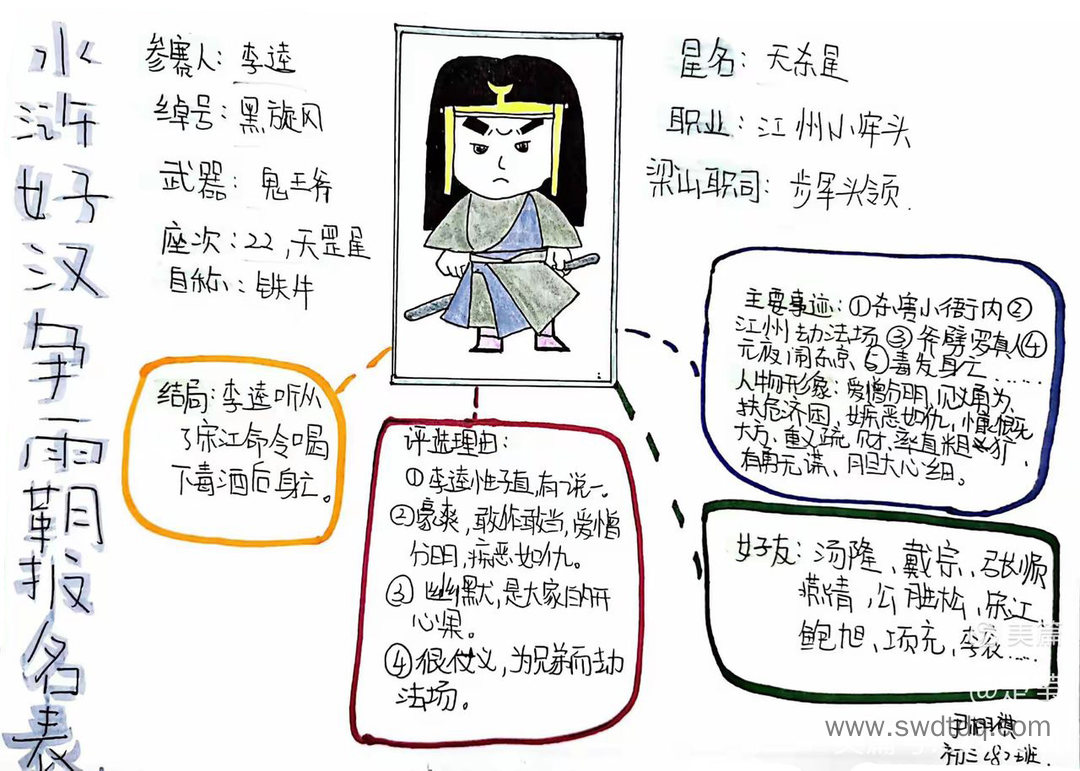 水浒好汉争霸报名表
参赛人：李逵
绰号：黑旋风
武器：鬼王斧
座次：22，天罡星
自称：铁牛
星名：天杀星
职业：江州小牢头
梁山职司：步军头领.
结局：李逵听从
了宋江命令喝
下毒酒后身亡。
评选理由：
①李逵性子直，有一说一。
②豪爽，敢作敢当，爱憎
分明，疾恶如仇。
③幽默，是大家的开
心果。
④很仗义，为兄弟而劫
法场。
主要事迹：①杀害小衙内②
江州劫法场③斧劈罗真人④
元夜闹东京⑤毒发身亡……
人物形象：爱憎分明，见义勇为、
扶危济困，嫉恶如仇，慷慨
大方、重义疏财，率直粗
有勇无谋、胆大心细。
好友：汤隆、戴宗、张顺
燕情，公胜松，宋江，
鲍旭、项充，李衮……
美篇
www.swdtuq.com
初三〈8〉班.